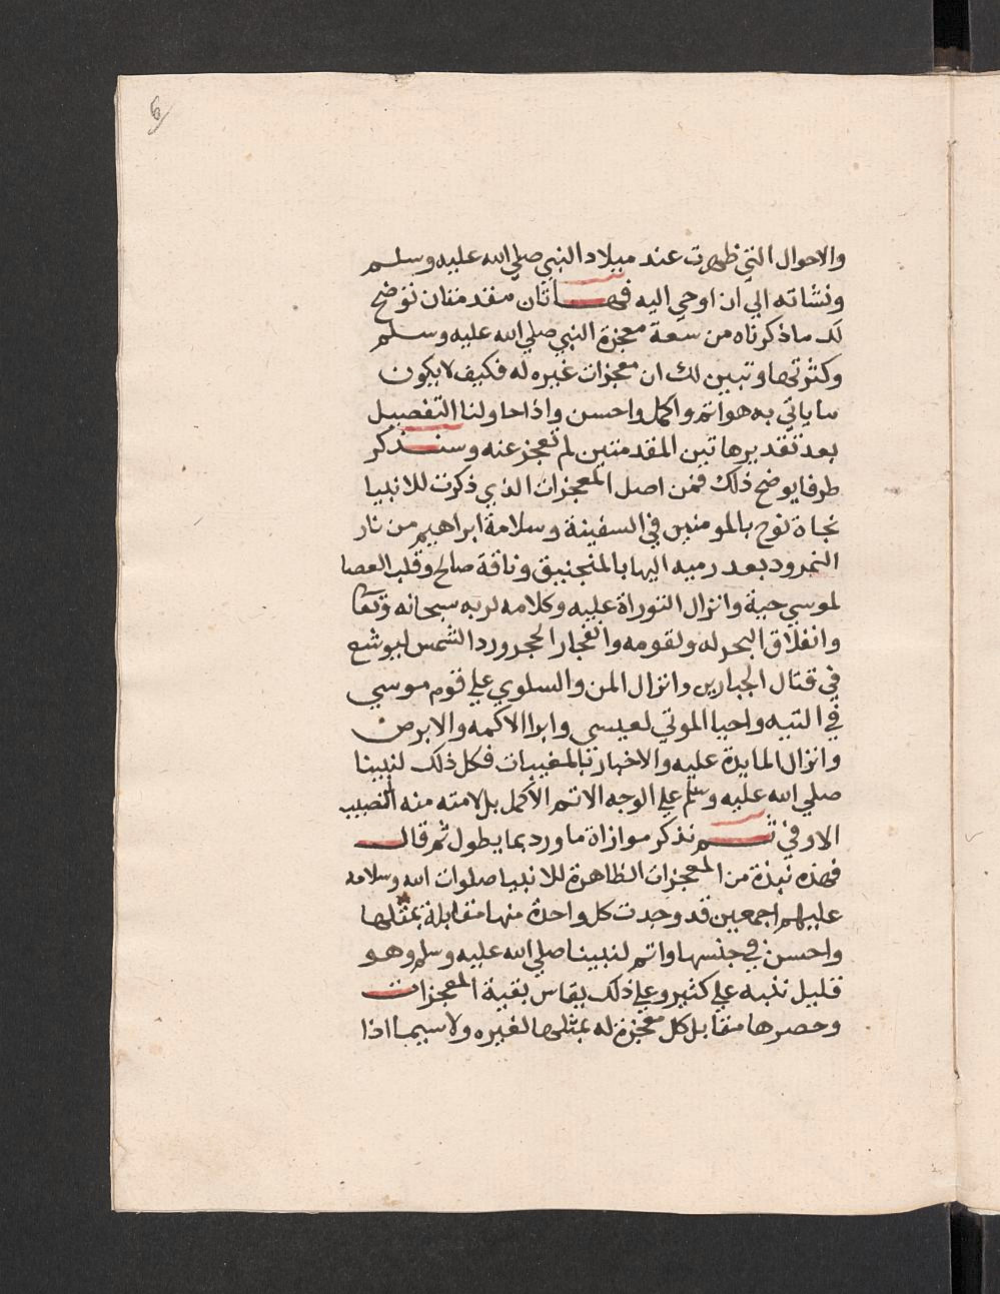 6
والاحوال التي ظهرت عند ميلاد النبي صلي الله عليه وسلم
ونشاته الي ان اوحي اليه فهاتان مقدمتان نوضح
لك ما ذكرناه من سعة معجزة النبي صلي الله عليه وسلم
وكثرتها وتبين لك ان معجزات غيره له فكيف لا يكون
ما ياتي به هو اتم واكمل واحسن واذا حاولنا التفصيل
بعد تقدير هاتين المقدمتين لم نعجز عنه وسنذكر
طرفا يوضح ذلك فمن اصل المعجزات الذي ذكرت للانبيا
نجاة نوح بالمومنين في السفينة وسلامة ابراهيم من نار
النمرود بعد رميه اليها بالمنجنيق وناقة صالح وقلب العصا
لموسي حية وانزال التوراة عليه وكلامه لربه سبحانه وتعا
وانفلاق البحر له ولقومه وانفجار الحجر ورد الشمس ليوشع
في قتال الجبارين وانزال المن والسلوي علي قوم موسي
في التيه واحيا الموتي لعيسي وابرا الاكمه والابرص
وانزال المايدة عليه والاخبار بالمغيبات فكل ذلك لنبينا
صلي الله عليه وسلم علي الوجه الاتم الاكمل بل لامته منه النصيب
الاوفي ثم نذكر موازاة ما ورد بما يطول ثم قال
فهذه نبذة من المعجزات الظاهرة للانبيا صلوات الله وسلامه
عليهم اجمعين قد وجدت كل واحدة منها مقابلة بمثلها
واحسن في جنسها واتم لنبينا صلي الله عليه وسلم وهو
قليل تنبه علي كثير وعلي ذلك يقاس بقية المعجزات
وحصرها مقابل كل معجزة له بمثلها لغيره ولا سيما اذا